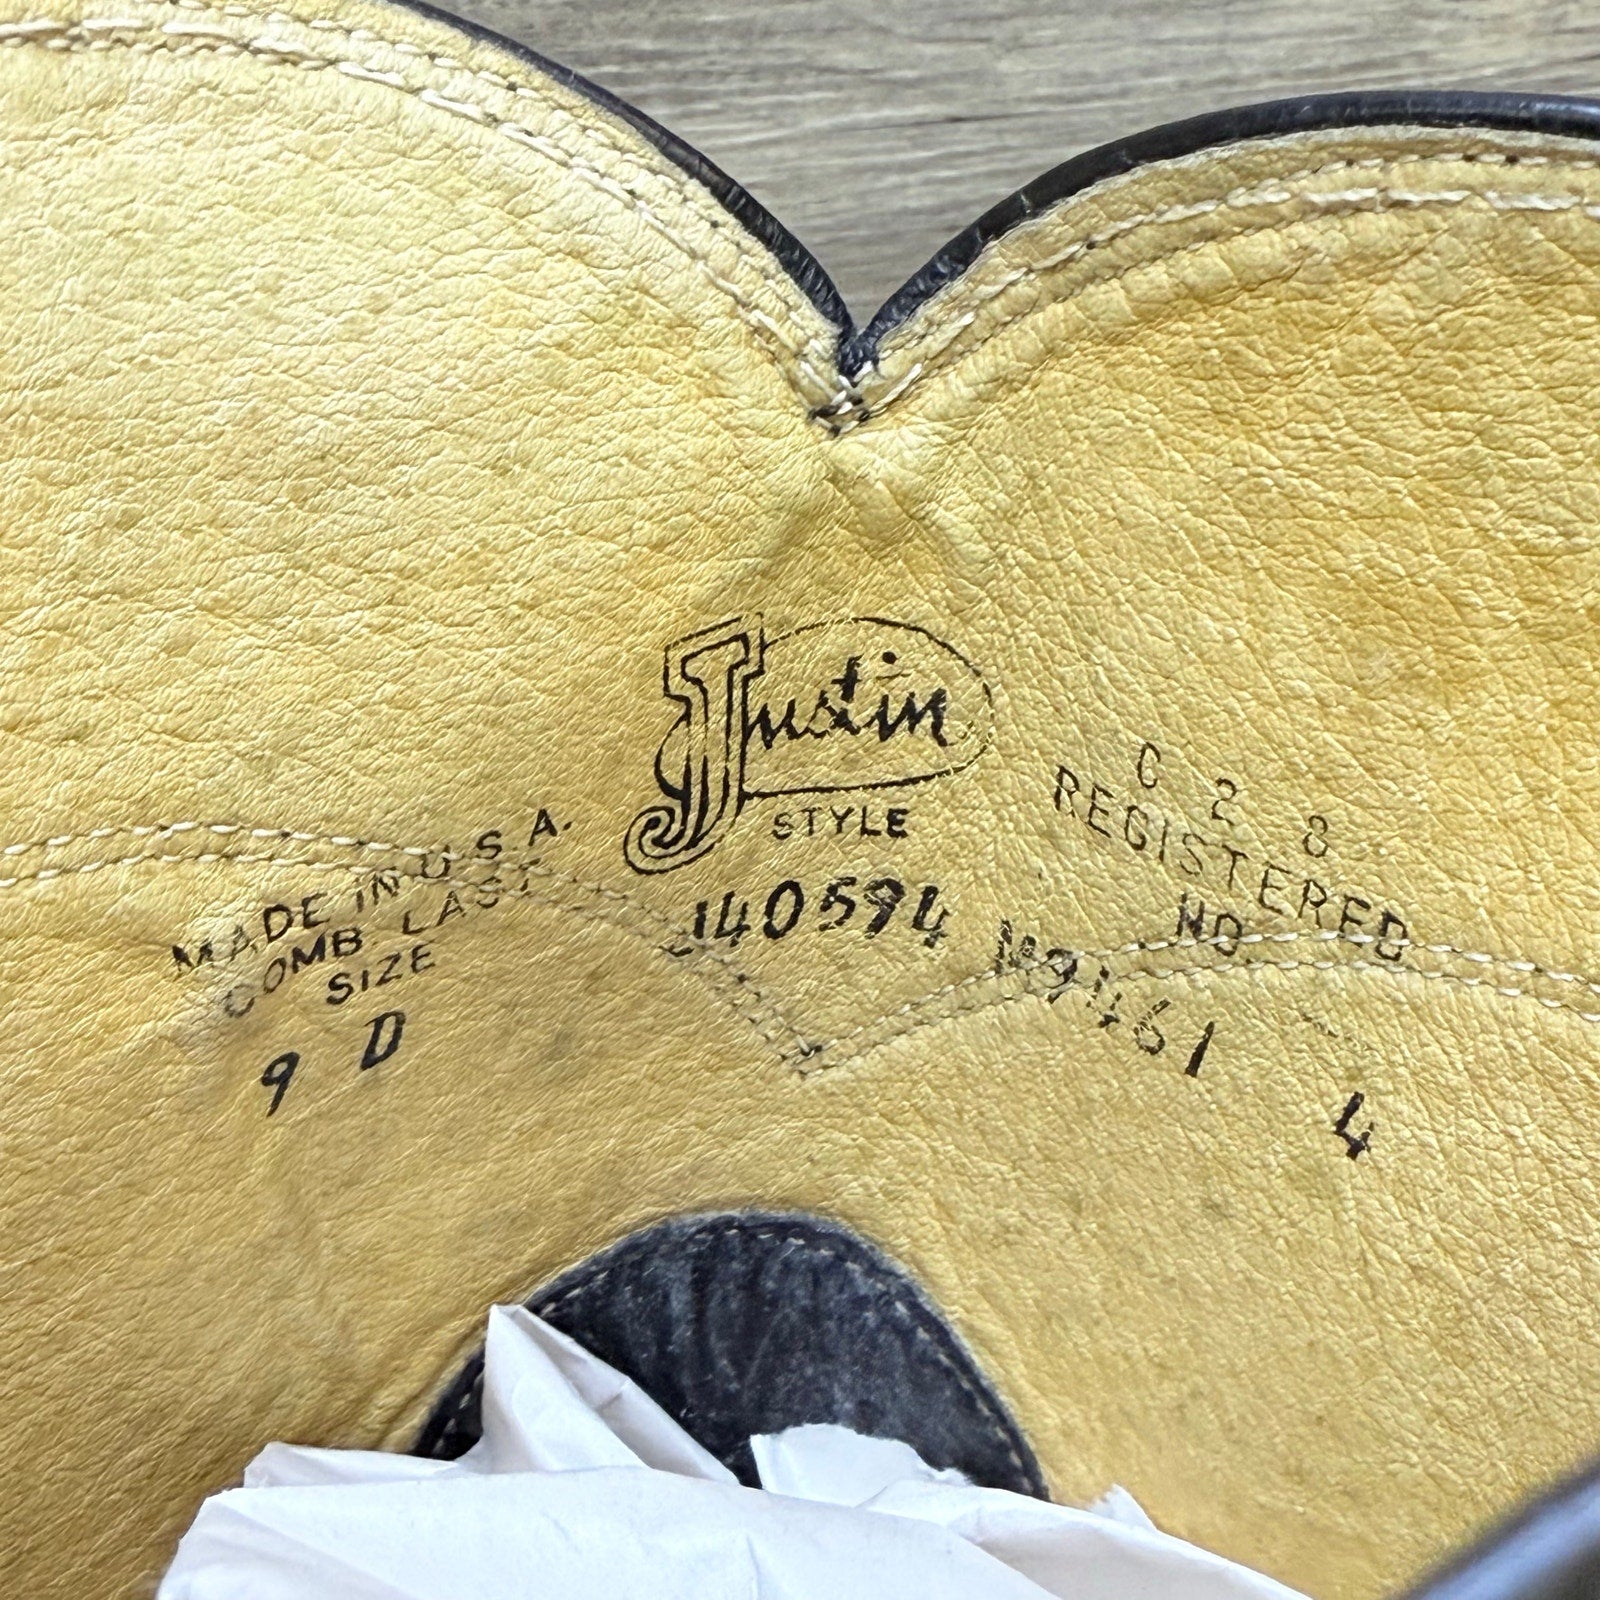 Justin
STYLE
J40594
MADE IN U.S.A.
COMB LAST
SIZE
9 D
C 2 8
REGISTERED
NO.
M9461
4